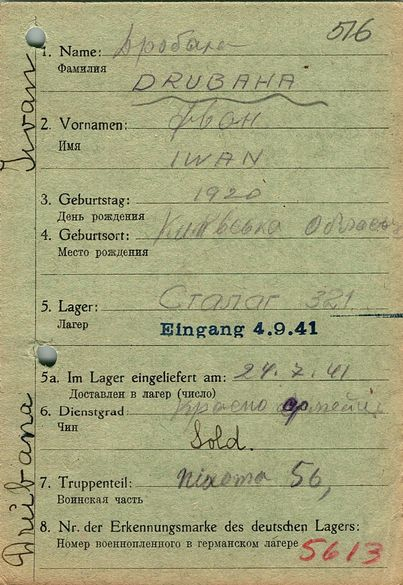 516
1. Name: Дробаха
Фамилия
DRUBAHA
2. Vornamen: Іван
Имя
IWAN
3. Geburtstag: 1920
День рождения
4. Geburtsort: Київська Область
Место рождения
5. Lager: Сталаг 321
Лагер
Eingang 4.9.41
5a. Im Lager eingeliefert am: 24.7.41
Доставлен в лагер (число)
6. Dienstgrad: Красно
Чин
Sold.
7. Truppenteil: піхота 56,
Воинская часть
8. Nr. der Erkennungsmarke des deutschen Lagers:
Номер военнопленного в германском лагере 5613
Iwan
Drubana